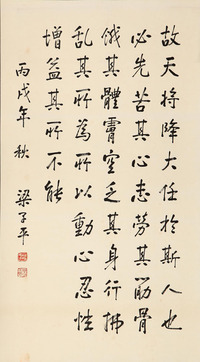 故天将降大任於斯人也
必先苦其心志勞其筋骨
餓其體膚空乏其身行拂
乱其所為所以動心忍性
增益其所不能
丙戌年秋 梁子平